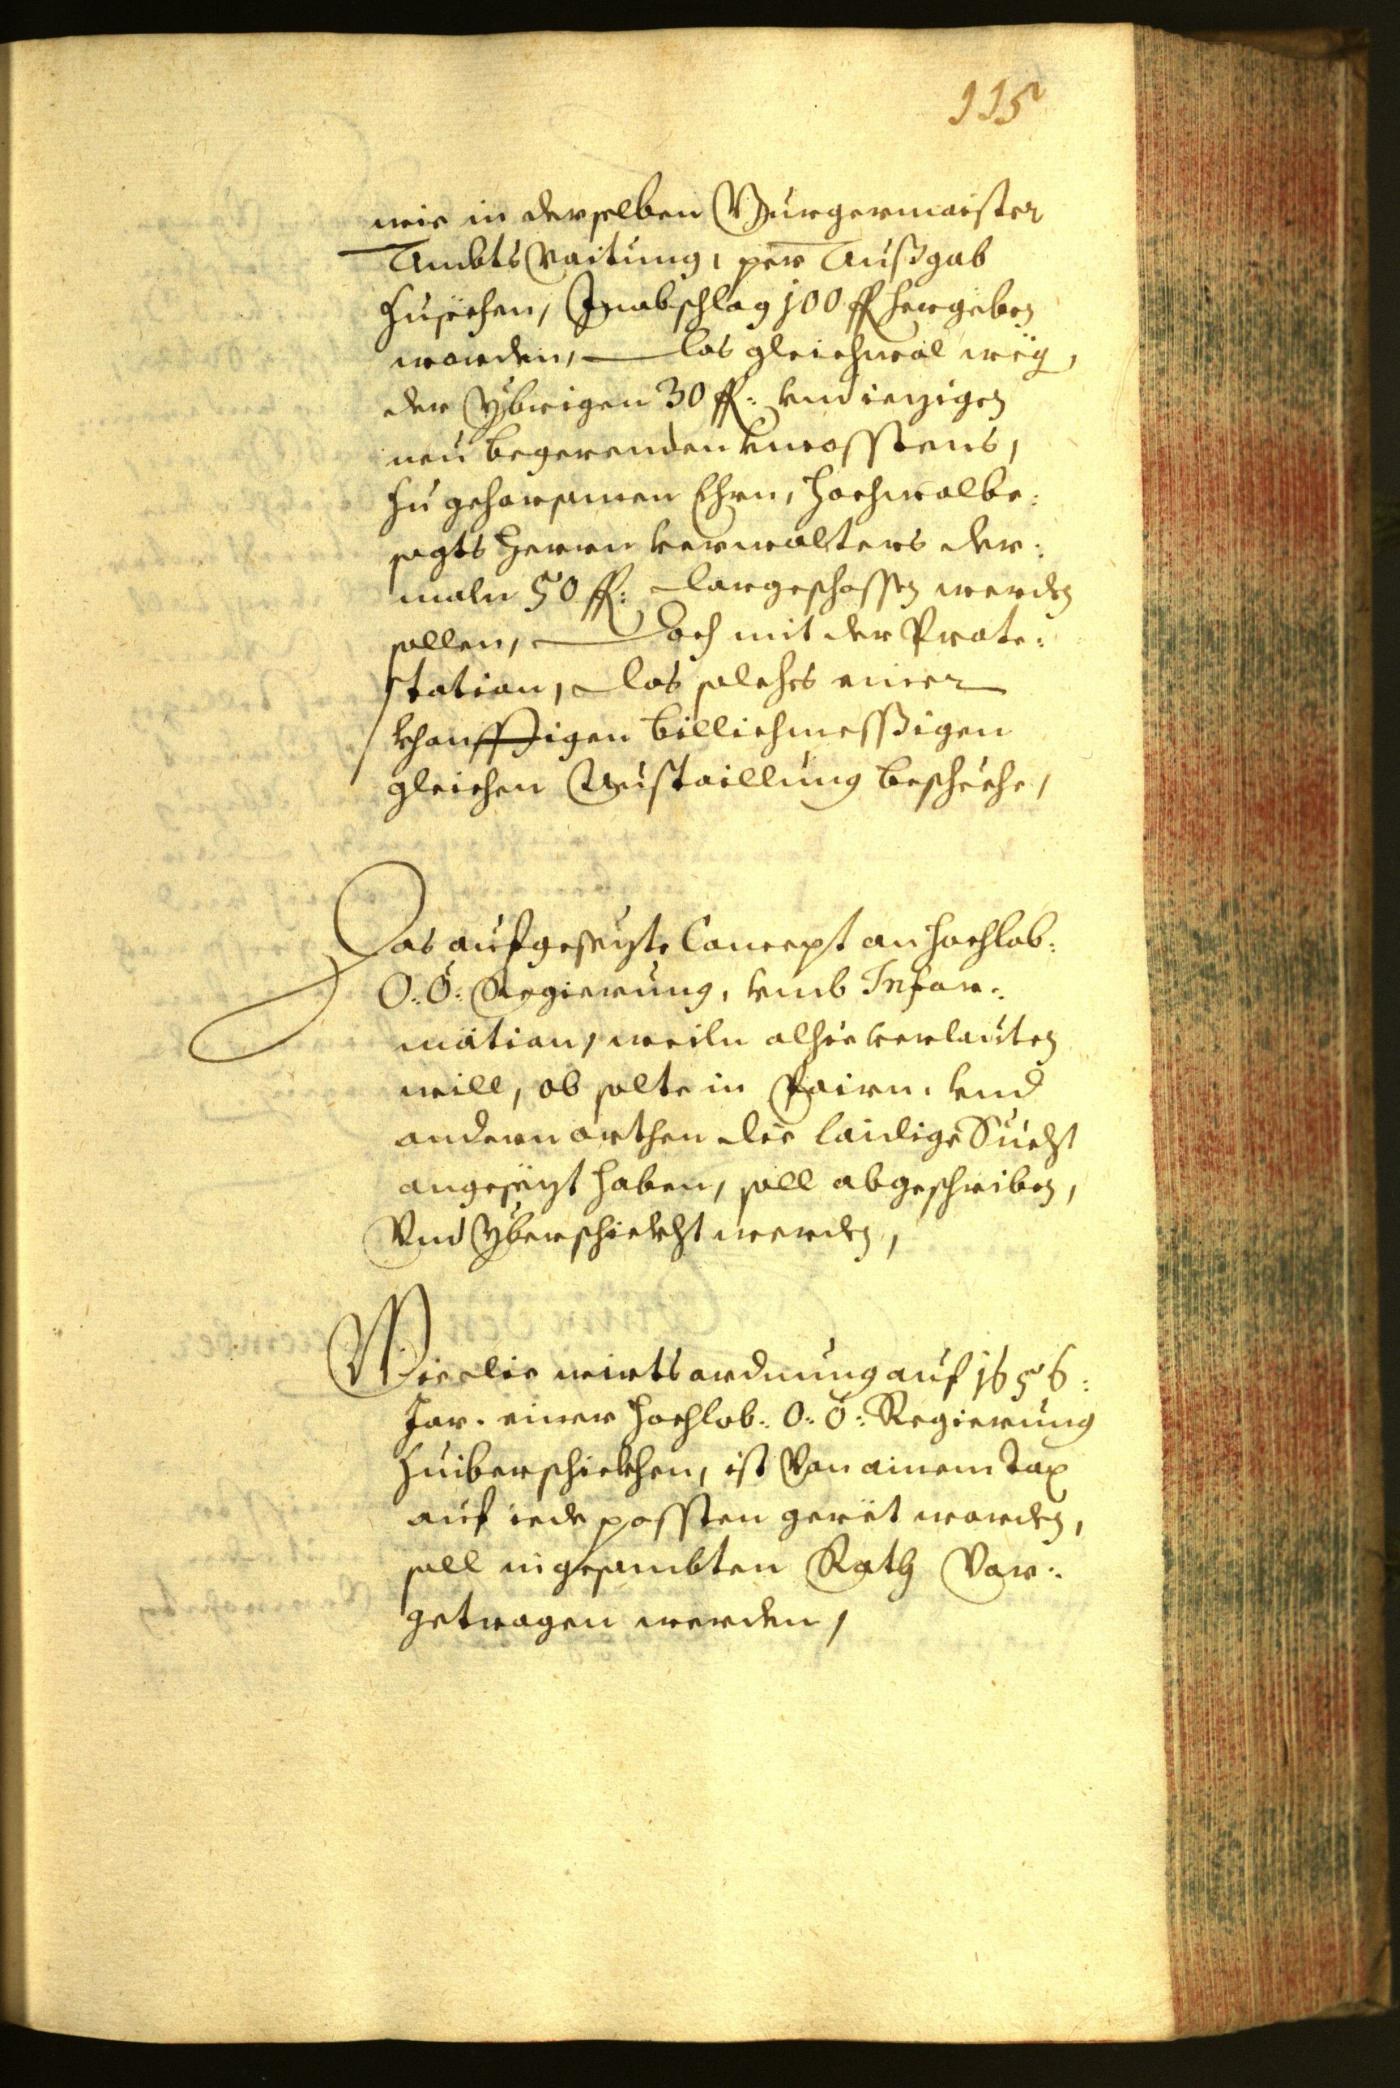 115
wie in derselben Burgermaister
Ambts Raitung, per Außgab
zusechen, In abschlag 100 fl hergeben
worden, das gleichwol weg,
der Ybrigen 30 fl: vnd ieziger
neu begerenden vncosstens,
zu gehorsamen Ehrn, hochwolbe:
sagts Herrn verwalters der:
maln 50 fl: dargeschossen werden
sollen, Doch mit der Prote:
station, das solches einer
khonfftigen billichmessßigen
gleichen Austaillung beschehe,
Das aufgesezte Concept an hochlob:
O: Ö: Regierung, vmb Infor:
mation, weiln alhie verlauten
will, ob solte in Pairn, vnd
andern orthen die laidige Sucht
angesezt haben, soll abgeschriben,
Vnd Yberschickht werden,
Wie die wirtsordnung auf 1656:
Jar. einer hochlob: O: Ö: Regierung
zuiberschickhen, ist Von ainem Tax
auf iede possten geret worden,
soll in gesambten Rath Vor:
getragen werden,